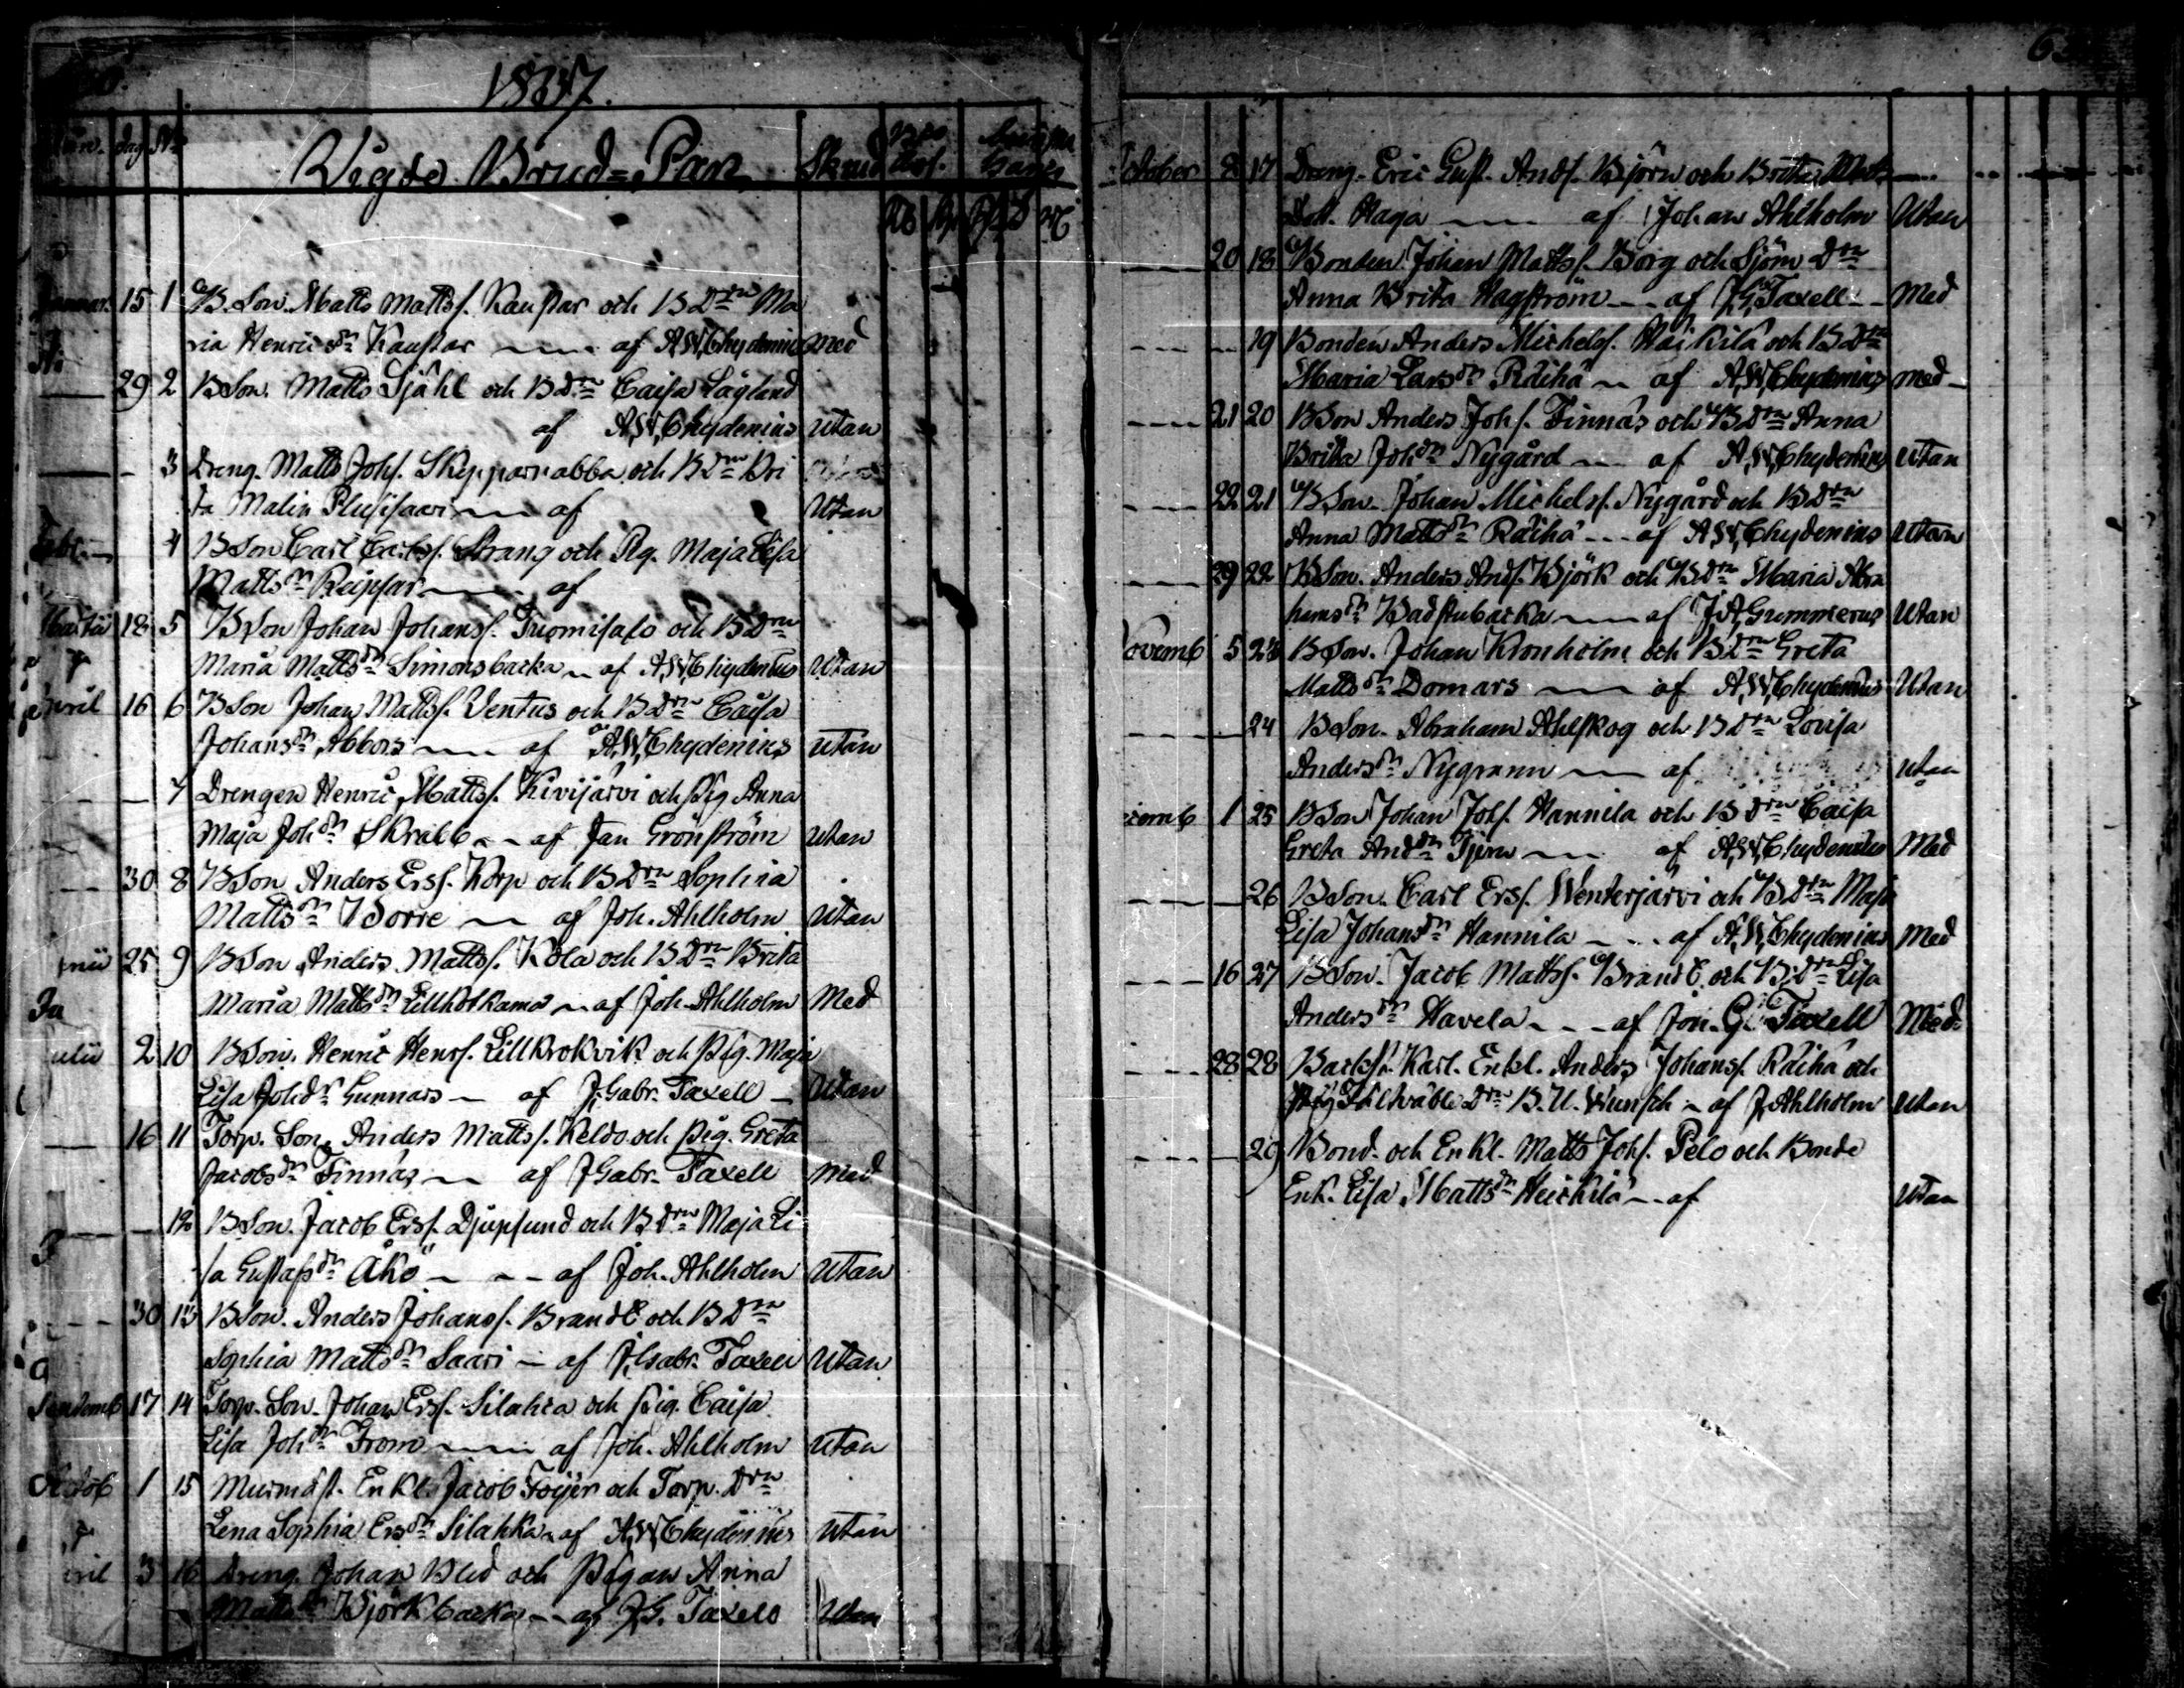 1837.
Vigde Brud=Par
Januar. 15 1 BSon. Matts Mattss. Kaustar och BDrn Ma
ria Henricsdr Kaustar af A.W. Chydenius Med
29 2 BSon. Matts Sjåhl och BDrn Caisa Lågland
af A.W. Chydenius Utan
3 Dreng. Matts Johs. Skepparsabba och BDrn Bri
ta Malin af Utan
Febr. 4 BSon Carl Carlss. Strang och Pig. Maja Lisa
Mattsdr Ripsar af
Martii 18 5 BSon Johan Johanss. Tuomisalo och BDrn
Maria Mattsdr Simonsbacka af A.W. Chydenius Utan
April 16 6 BSon Johan Mattss. Ventus och BDrn Caisa
Johansdr Abbors af A.W. Chydenius Utan
7 Drengen Henric Mattss. Kivijärvi och Pig Anna
Maja Johdr Skrabb af Jan Grönström Utan
30 8 BSon Anders Erss. Korp och BDrn Sophia
Mattsdr Borre af Joh. Ahlholm Utan
Junii 25 9 BSon Anders Mattss. Kola och BDrn Brita
Maria Mattsdr af Joh. Ahlholm Med
Julii 2 10 BSon. Henric Henrs. Lillkrokvik och Pig. Maja
Lisa Johdr Gunnars af J. Gabr. Taxell Utan
16 11 Torp. Son. Anders Mattss. Keldo och Pig. Greta
Jacobsdr Finnäs af J Gabr. Taxell Med
12 BSon. Jacob Erss. Djupsund och BDrn Maja Li
sa Gustafsdr Åkö af Joh. Ahlholm Utan
30 13 BSon. Anders Johanss. Brandt och BDrn
Sophia Mattsdr Saari af J. Gabr. Taxell Utan
Septemb 17 14 Torp. Son. Johan Erss. Silahka och Pig. Caisa
Lisa Johdr From af Joh. Ahlholm Utan
Octob 1 15 Murmäst. Enkl. Jacob och Torp. Drn
Lena Sophia Ersdr Silahka af A.W. Chydenius Utan
3 16 Dreng. Johan Blid och Pigan Anna
Mattsdr Björkbacka af J.G. Taxell Utan
October 8 17 Dreng. Eric Gust. Ands. Björn och Brita Matts
Dott. Haga af Johan Ahlholm Utan
20 18 Bonden Johan Mattss. Borg och Sjöm Drn
Anna Brita Hagström af J.G. Taxell Med
19 Bonden Anders Michelss. och BDrn
Maria Larsdr Räihä af A.W. Chydenius Med
21 20 BSon Anders Johs. Finnäs och BDrn Anna
Brita Johdr Nygård af A.W. Chydenius Utan
22 21 BSon. Johan Michelss. Nygård och BDrn
Anna Mattsdr Räihä af A.W. Chydenius Utan
29 22 BSon. Anders Ands. Björk och BDrn Maria Abra
hamsdr Badstubacka af J.A. Gummerus Utan
Novemb 5 23 BSon. Johan Kronholm och BDrn Greta
Mattsdr Domars af A.W. Chydenius Utan
24 BSon. Abraham Ahlskog och BDrn Lovisa
Andersdr Nygrann af Utan
1 25 BSon Johan Johs. Hannila och BDrn Caisa
Greta Anddr Tjern af A.W. Chydenius Med
26 BSon. Carl Erss. Wenterjärvi och BDrn Maja
Lisa Johansdr Hannila af A.W. Chydenius Med
16 27 BSon. Jacob Mattss. Brandt och BDrn Lisa
Andersdr Havela af Joh. G. Taxell Med
28 28 Karl. Enkl. Anders Johanss. Räihä och
Drn B. U. Wunsch af J. Ahlholm Utan
29 Bond. och Enkl. Matts Johs. Pelo och Bonde
Enk. Lisa Mattsdr Heickilä af Utan